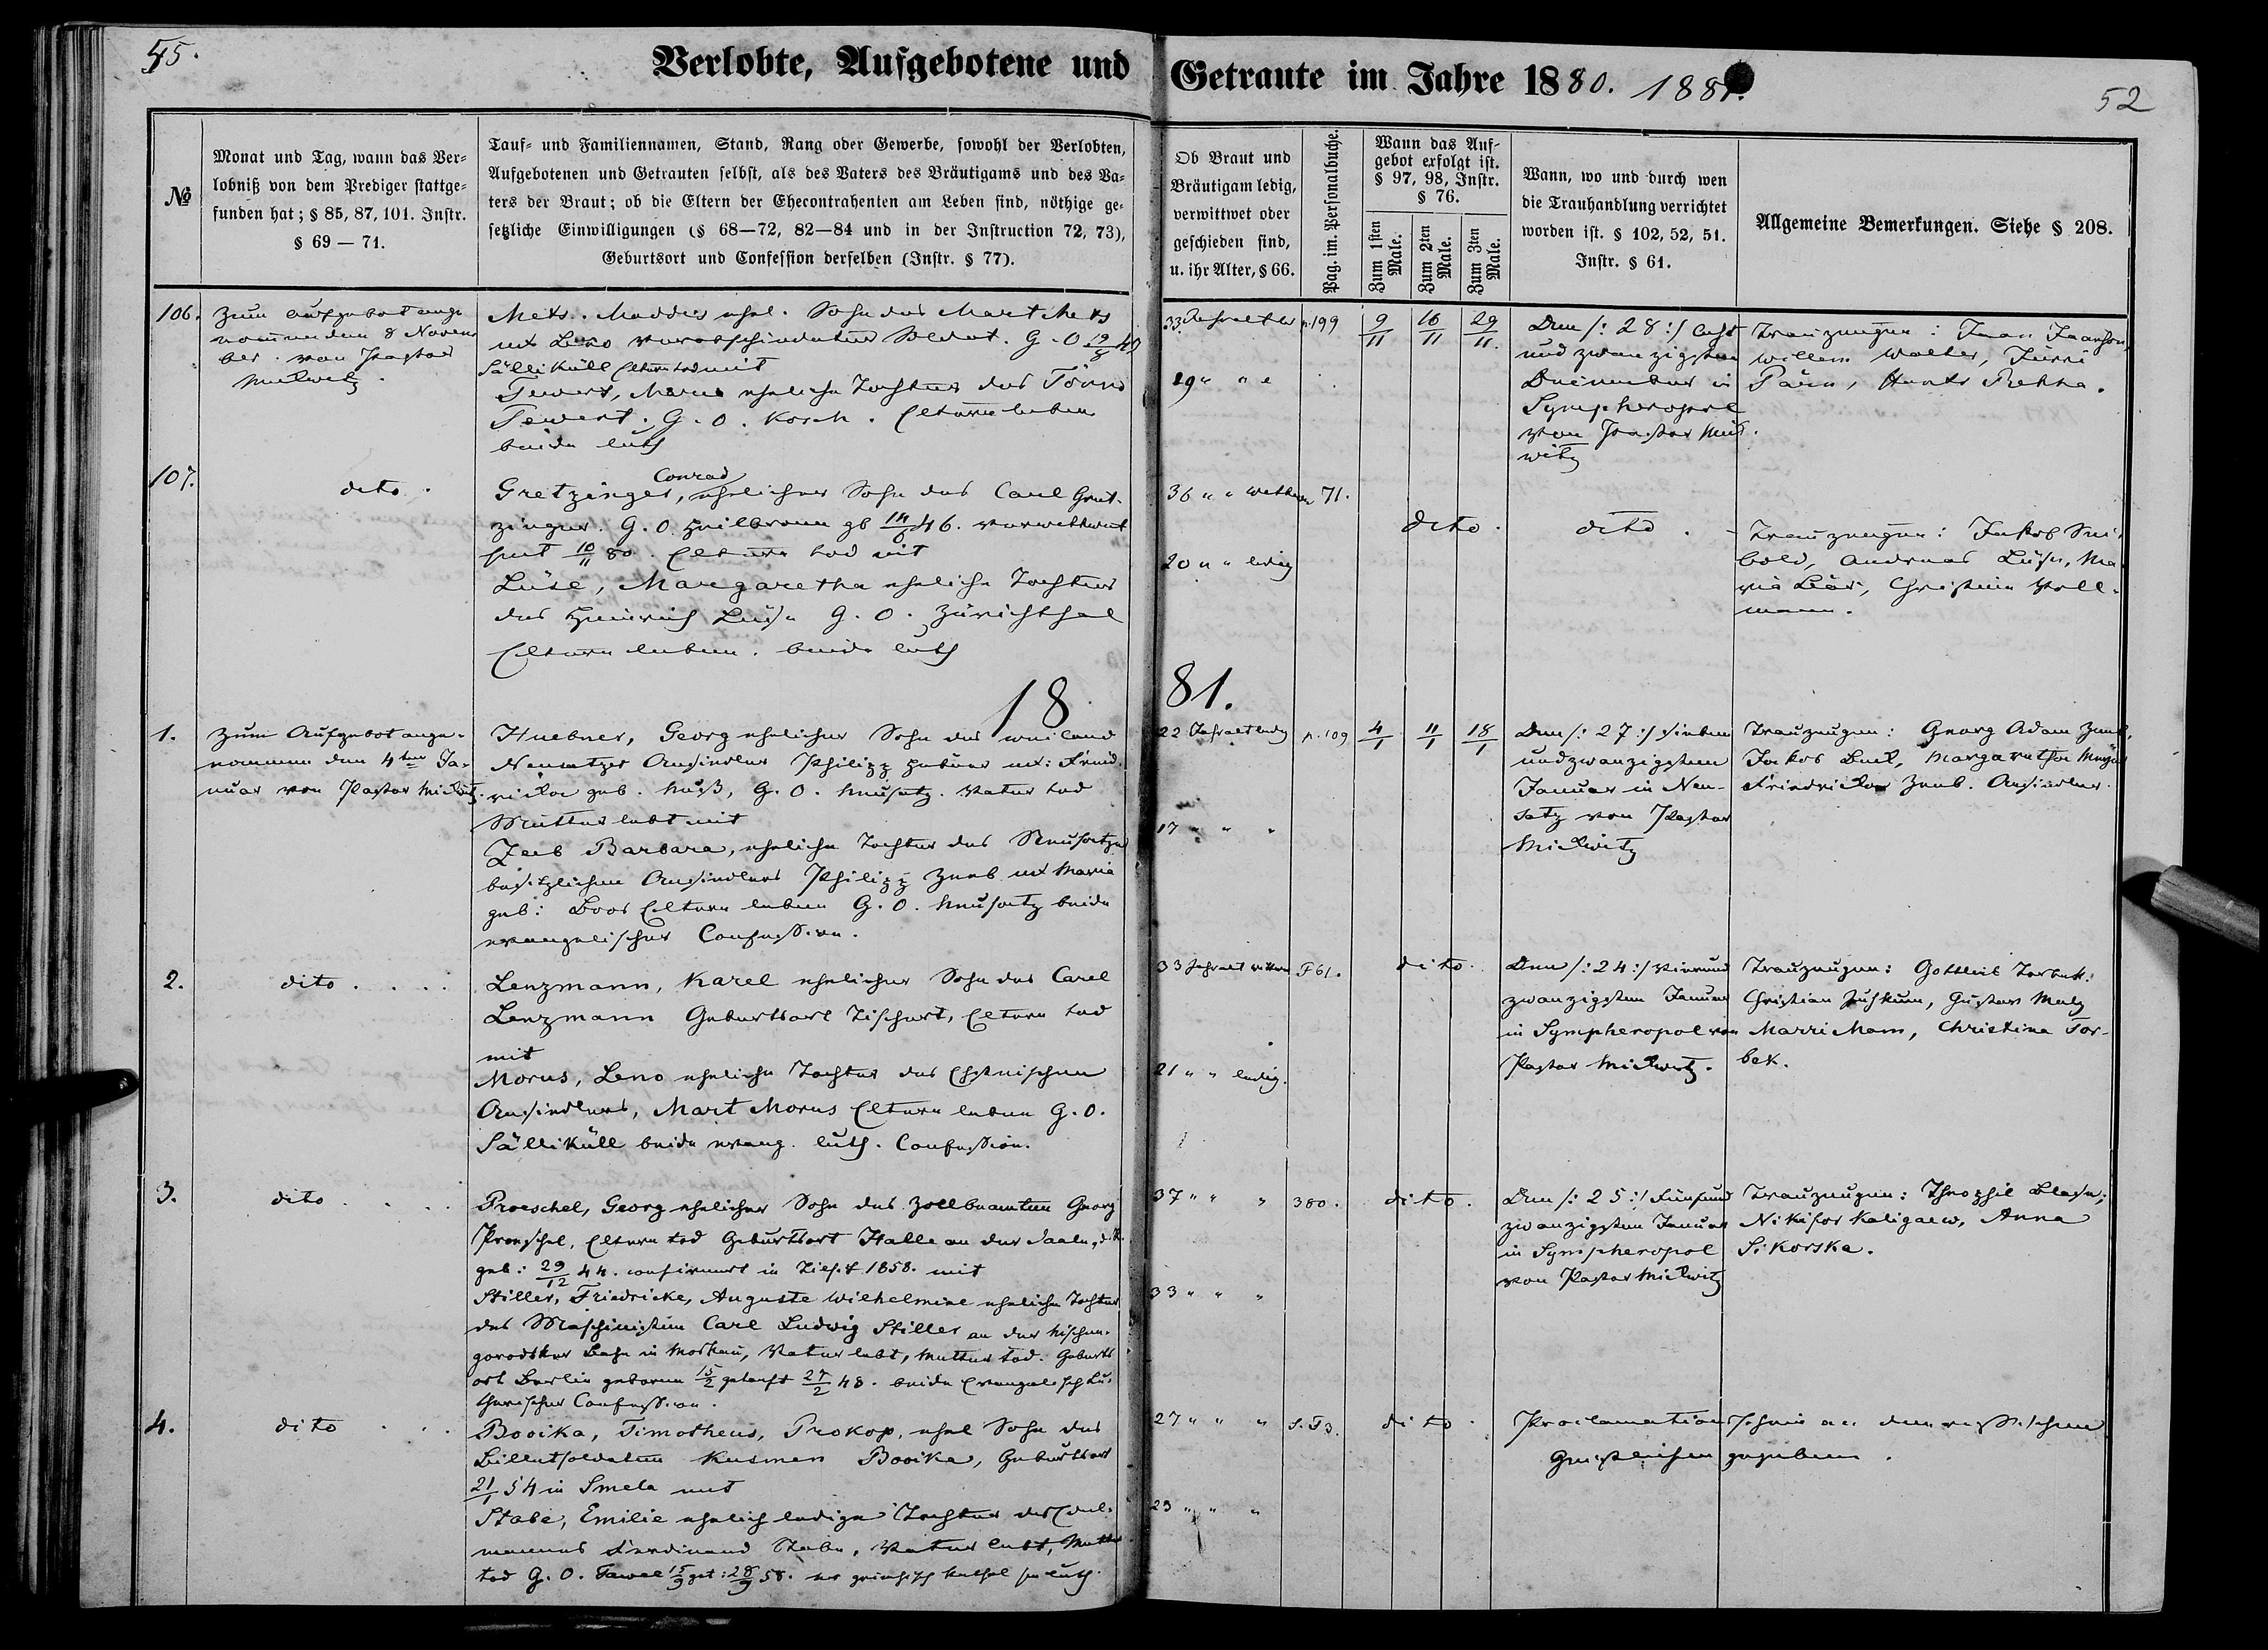 45.
Verlobte, Aufgebotene und Getraute im Jahre 1880. 1881.
52
№
Monat und Tag, wann das Ver-
lobniß von dem Prediger stattge-
funden hat; § 85, 87, 101. Instr.
§ 69 — 71.
Tauf- und Familiennamen, Stand, Rang oder Gewerbe, sowohl der Verlobten,
Aufgebotenen und Getrauten selbst, als des Vaters des Bräutigams und des Va-
ters der Braut; ob die Eltern der Ehecontrahenten am Leben sind, nöthige ge-
setzliche Einwilligungen (§ 68—72, 82—84 und in der Instruction 72, 73),
Geburtsort und Confession derselben (Instr. § 77).
Ob Braut und
Bräutigam ledig,
verwittwet oder
geschieden sind,
u. ihr Alter, § 66.
Pag. im. Personalbuche.
Wann das Auf-
gebot erfolgt ist.
§ 97, 98, Instr.
§ 76.
Zum 1sten
Male.
Zum 2ten
Male.
Zum 3ten
Male.
Wann, wo und durch wen
die Trauhandlung verrichtet
worden ist. § 102, 52, 51.
Instr. § 61.
Allgemeine Bemerkungen. Siehe § 208.
106.
Zum Aufgebot ange
nommen den 8 Novem
ber von Pastor
Mickwitz.
Mets. Maddis ehel. Sohn des Mart Mets
ux Leno verabschiedeter Soldat. G. O
Sälliküll Eltern tod mit
Tewert, Marie eheliche Tochter des Tönno
Tewert. G. O. Kosch. Eltern leben
beide luth
33 Jahr alt
19 " " "
p. 199
9/11
16/11
29/11.
Den /: 28 :/ acht
und zwanzigsten
Dezember in
Sympheropol
von Pastor Mick
witz
Trauzeugen: Jaan Jaanson,
Willem Walter, Jürri
107.
dito.
Gretzinger, Conrad ehelicher Sohn des Carl Gret-
zinger. G. O. Heilbronn gb 46. verwittwet
seit 10/11 80. Eltern tod mit
Lüse, Margaretha eheliche Tochter
des Heinrich Lüse G. O. Zürichthal
Eltern leben. beide luth
36 " " wittwer
20 " " ledig
71.
dito.
dito.
Trauzeugen: Jakob Sei-
bold, Andreas Lüse, Ma
ria Bär, Christine Voll-
mann.
1881.
1.
Zum Aufgebot ange-
nommen den 4ten Ja-
nuar von Pastor Mickwitz.
Huebner, Georg ehelicher Sohn des weiland
Neusatzer Ansiedlers Philipp Hübner ux: Fried-
ricka geb. Nuß, G. O. Neusatz. Vater tod
Mutter lebt mit
Zeeb Barbara, eheliche Tochter des Neusatzer
besitzlichen Ansiedlers Philipp Zeeb ux Maria
geb: Boos Eltern leben G. O. Neusatz beide
evangelischer Confession.
22 Jahr alt ledig
17 " " "
p. 109
4/1
11/1
18/1
Den /: 27 :/ sieben
undzwanzigsten
Januar in Neu-
satz von Pastor
Mickwitz
Trauzeugen: Georg Adam Zeeb,
Jakob Buck, Margaretha
Friedricka Zeeb. Ansiedler.
2.
dito . . . .
Lenzmann, Karel ehelicher Sohn des Carel
Lenzmann Geburtsort Tischert, Eltern tod
mit
Morus, Leno eheliche Tochter des Ehstnischen
Ansiedlers, Mart Morus Eltern leben G. O.
Sälliküll beide evang. luth. Confession.
33 Jahr alt wittwer
21 " " ledig.
P 61.
dito.
Den /: 24 :/ vierund
zwanzigsten Januar
in Sympheropol von
Pastor Mickwitz.
Trauzeugen: Gottlieb Torbek:
Christian, Gustav Metz
Marri Mam, Christina Tor-
bek.
3.
dito . . . .
Proeschel, Georg ehelicher Sohn des Zollbeamten Georg
Proeschel, Eltern tod Geburtsort Halle an der Saale, d.
geb: 29/12 44. confirmirt in 1858. mit
Stiller, Friedricke, Auguste Wilhelmine eheliche Tochter
des Maschinisten Carl Ludwig Stiller an der Nischne-
gorodsker Bahn in Moskau, Vater lebt, Mutter tod. Geburts
ort Berlin geboren 15/2 getauft 27/2 48. beide Evangelisch Lu-
therischer Confession.
37 " " "
33 " " "
380.
dito.
Den /: 25 :/ Fünfund
zwanzigsten Januar
in Sympheropol
von Pastor Mickwitz
Trauzeugen: Theophil Blese;
Nikifor Kaligaew, Anna
Sikorska.
4.
dito . . .
Booika, Timotheus, Prokop, ehel Sohn des
Billetsoldaten Kusmen Booika, Geburtsort
21/1 54 in Smela mit
Stabe, Emilie ehelich ledige Tochter des Edel-
mannes Ferdinand Stabe, Vater lebt, Mutter
tod G. O. 15/9 get: 28/9 58. er griechisch kathol sie luth.
27 " " "
23 " " "
dito.
Proclamationsschein an den russischen
Geistlichen gegeben.